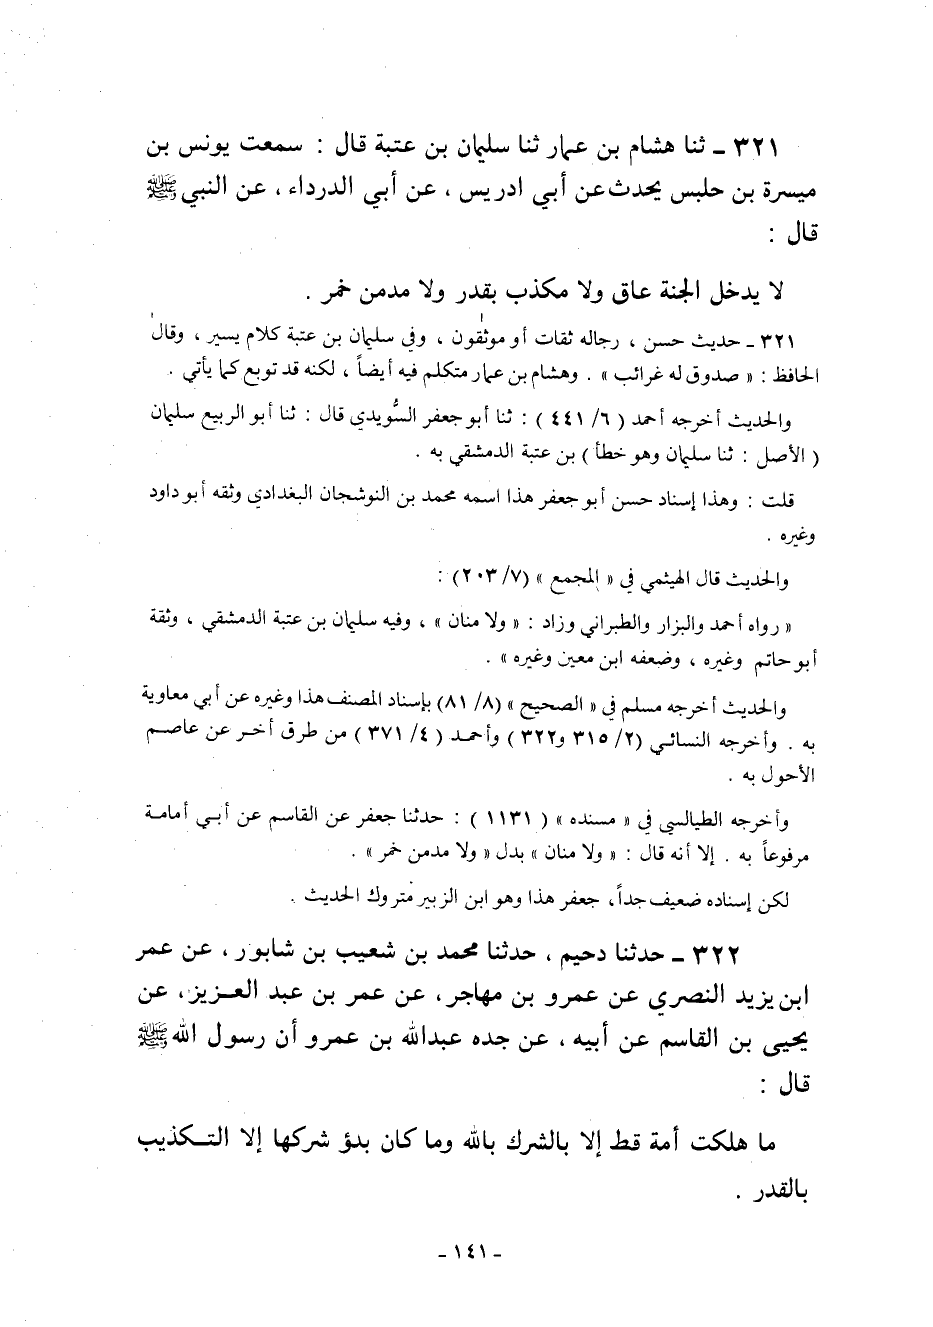 ٣٢١ ـ ثنا هشام بن عمار ثنا سليمان بن عتبة قال : سمعت يونس بن
ميسرة بن حلبس يحدث عن أبي ادريس ، عن أبي الدرداء ، عن النبي ﷺ
قال :
لا يدخل الجنة عاق ولا مكذب بقدر ولا مدمن خمر .
٣٢١ ـ حديث حسن ، رجاله ثقات أو موثقون ، وفي سليمان بن عتبة كلام يسير ، وقال
الحافظ : « صدوق له غرائب » . وهشام بن عمار متكلم فيه أيضاً ، لكنه قد توبع كما يأتي .
والحديث أخرجه أحمد ( ٦/ ٤٤١ ) : ثنا أبو جعفر السُّويدي قال : ثنا أبو الربيع سليمان
( الأصل : ثنا سليمان وهو خطأ ) بن عتبة الدمشقي به .
قلت : وهذا إسناد حسن أبو جعفر هذا اسمه محمد بن النوشجان البغدادي وثقه أبو داود
وغيره .
والحديث قال الهيثمي في « المجمع » (٧/ ٢٠٣) :
« رواه أحمد والبزار والطبراني وزاد : « ولا منان » ، وفيه سليمان بن عتبة الدمشقي ، وثقة
أبو حاتم وغيره ، وضعفه ابن معين وغيره » .
والحديث أخرجه مسلم في « الصحيح » (٨/ ٨١) بإسناد المصنف هذا وغيره عن أبي معاوية
به . وأخرجه النسائي (٢/ ٣١٥ و٣٢٢ ) وأحمد ( ٤/ ٣٧١ ) من طرق أخر عن عاصم
الأحول به .
وأخرجه الطيالسي في « مسنده » ( ١١٣١ ) : حدثنا جعفر عن القاسم عن أبي أمامة
مرفوعاً به . إلا أنه قال : « ولا منان » بدل « ولا مدمن خمر » .
لكن إسناده ضعيف جداً، جعفر هذا وهو ابن الزبير متروك الحديث .
٣٢٢ ـ حدثنا دحيم ، حدثنا محمد بن شعيب بن شابور ، عن عمر
ابن يزيد النصري عن عمرو بن مهاجر، عن عمر بن عبد العزيز، عن
يحيى بن القاسم عن أبيه ، عن جده عبدالله بن عمرو أن رسول الله ﷺ
قال :
ما هلكت أمة قط إلا بالشرك بالله وما كان بدؤ شركها إلا التكذيب
بالقدر .
ـ ١٤١ ـ